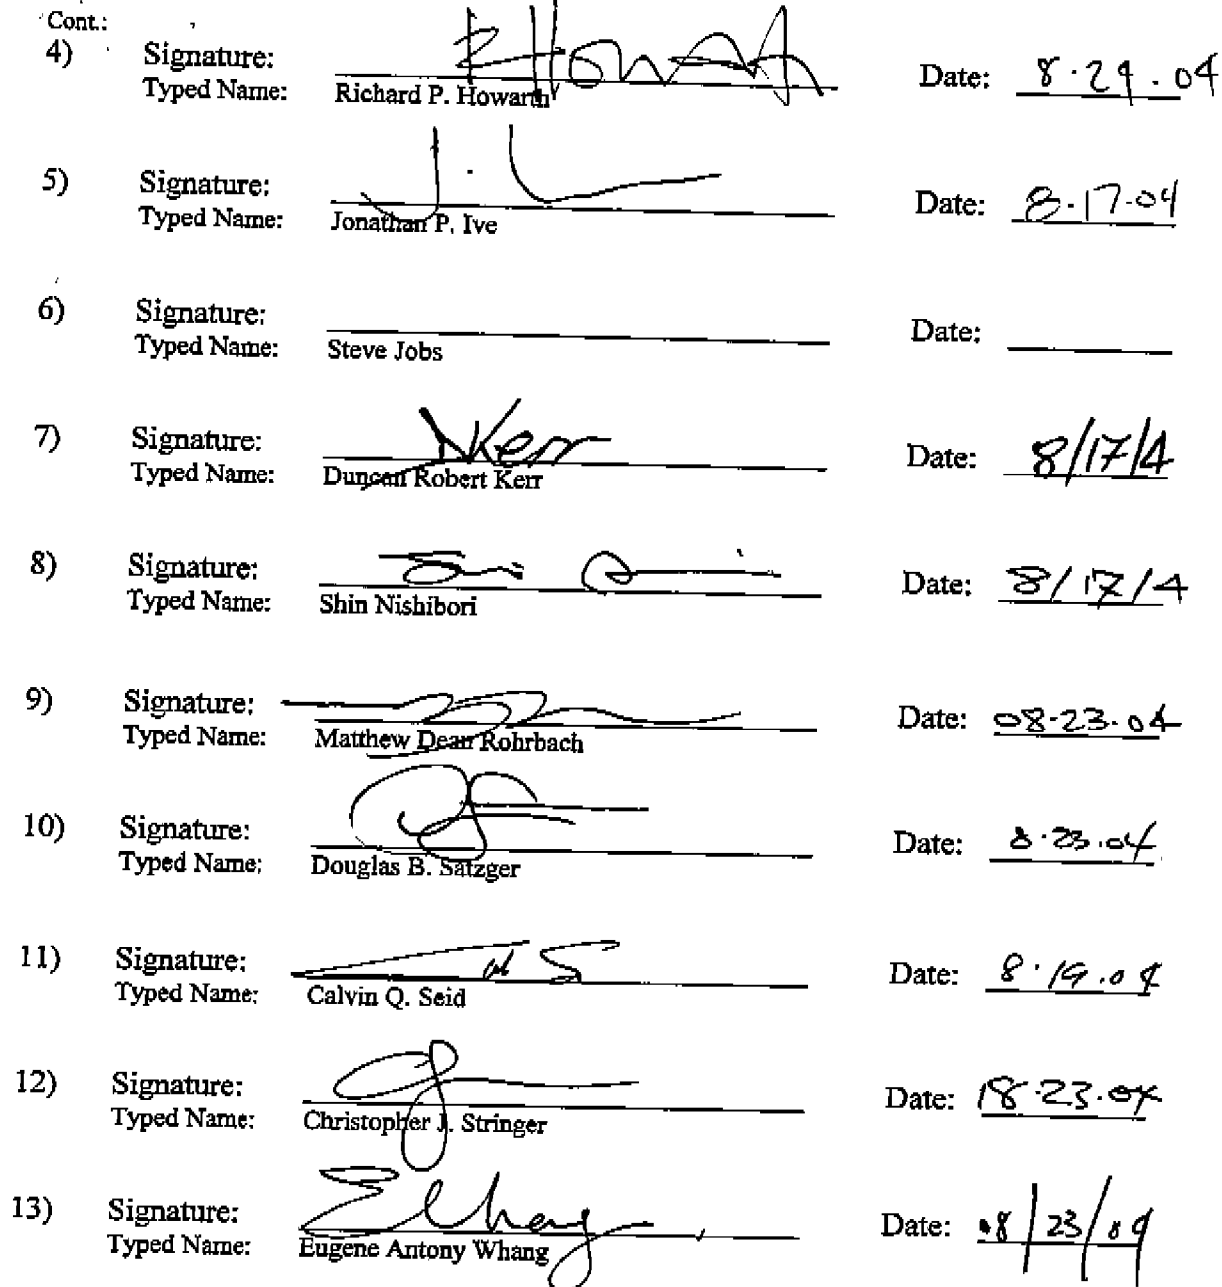 Cont.:
4) Signature: RHowarth Date: 8.29.04
Typed Name: Richard P. Howarth
5) Signature: Date: 8.17.04
Typed Name: Jonathan P. Ive
6) Signature: Date:
Typed Name: Steve Jobs
7) Signature: DKerr Date: 8/17/4
Typed Name: Duncan Robert Kerr
8) Signature: Date: 8/17/4
Typed Name: Shin Nishibori
9) Signature: Date: 08.23.04
Typed Name: Matthew Dean Rohrbach
10) Signature: Date: 8.23.04
Typed Name: Douglas B. Satzger
11) Signature: Date: 8.19.04
Typed Name: Calvin Q. Seid
12) Signature: Date: 8.23.04
Typed Name: Christopher J. Stringer
13) Signature: EWhang Date: 08/23/04
Typed Name: Eugene Antony Whang